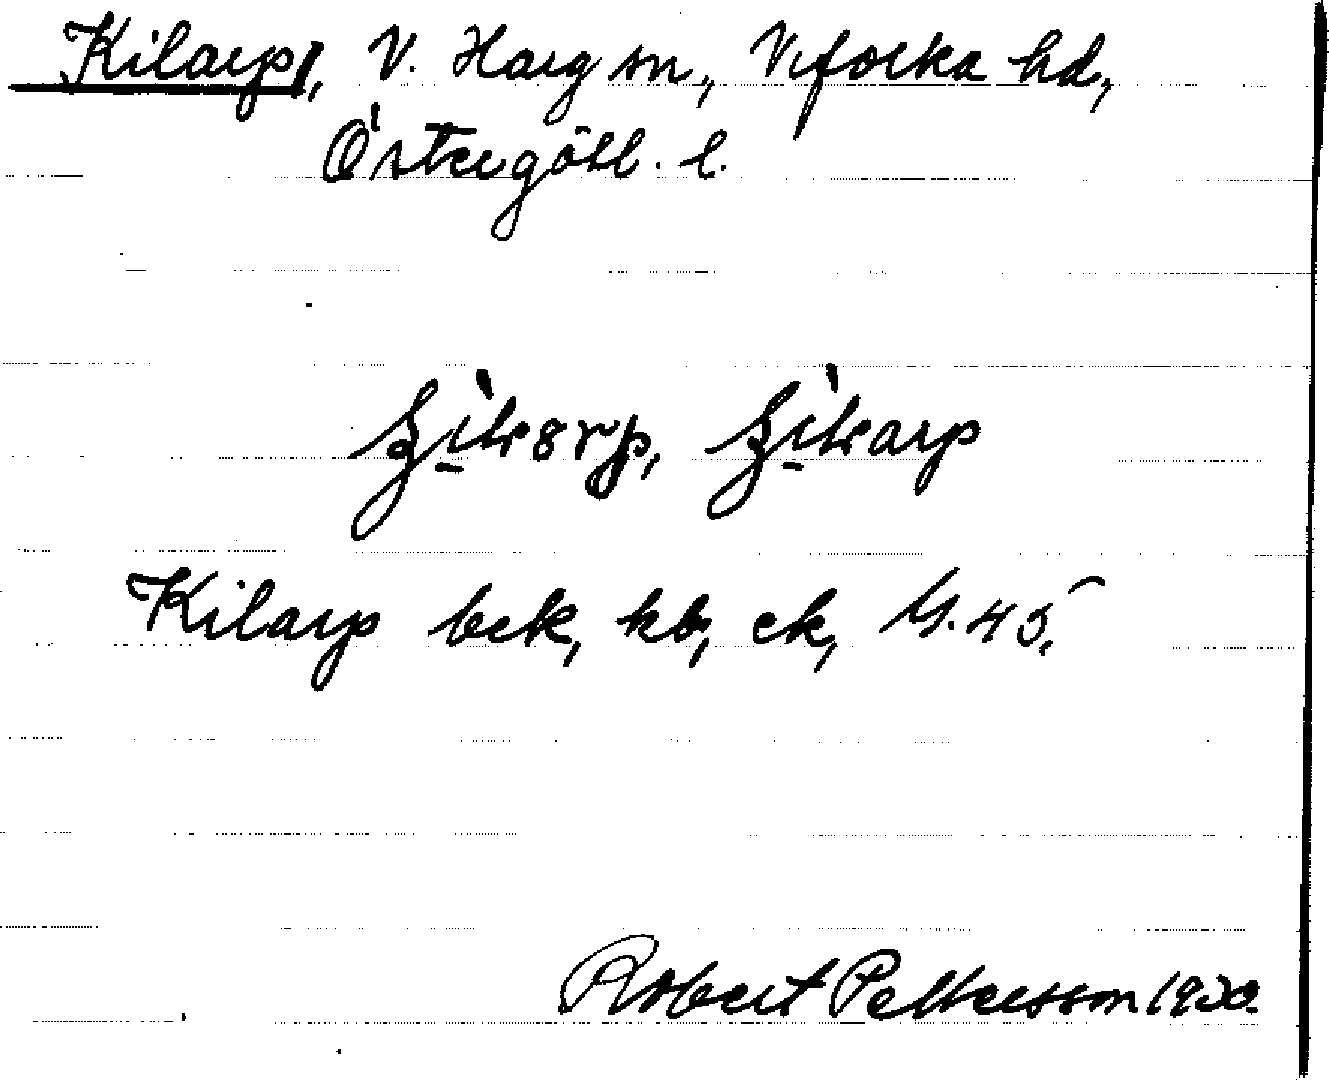 Kilarp, V. Harg sn, Vifolka hd,
Östergötl. l.
Kilarp bek, kb, ek, G. 45.
Robert Pettersson